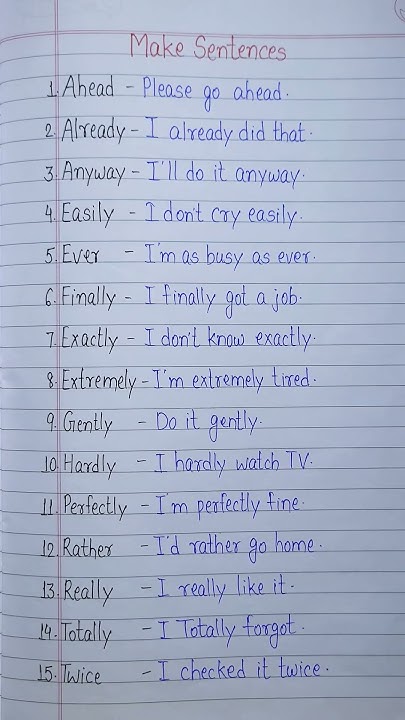 Make Sentences
1. Ahead - Please go ahead.
2. Already - I already did that.
3. Anyway - I'll do it anyway.
4. Easily - I don't cry easily.
5. Ever - I'm as busy as ever.
6. Finally - I finally got a job.
7. Exactly - I don't know exactly.
8. Extremely - I'm extremely tired.
9. Gently - Do it gently.
10. Hardly - I hardly watch TV.
11. Perfectly - I'm perfectly fine.
12. Rather - I'd rather go home.
13. Really - I really like it.
14. Totally - I Totally forgot.
15. Twice - I checked it twice.